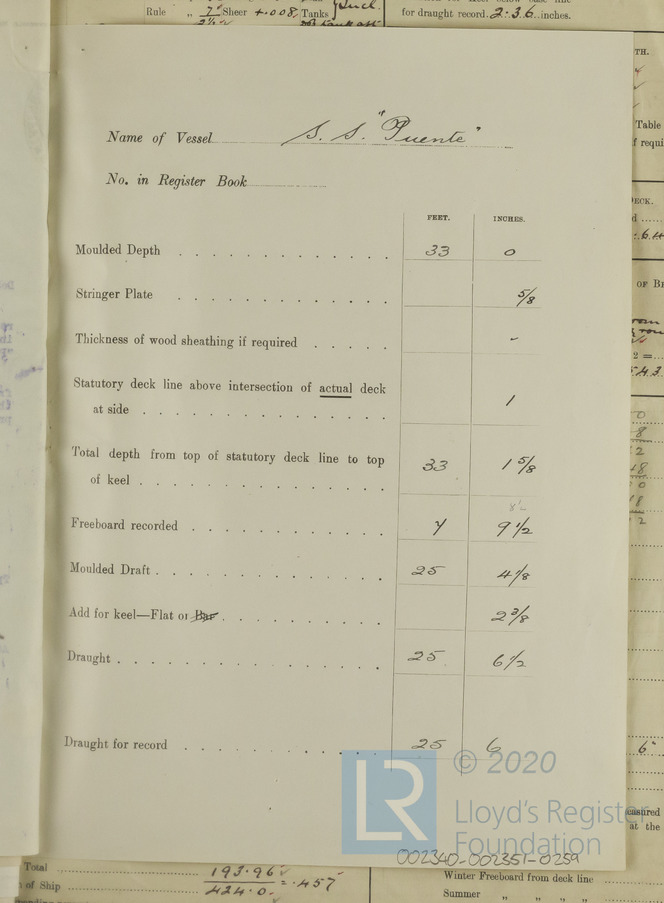 Rule „ 7" Sheer +.008 Tanks Incl.
for draught record. 2.36 inches.
TH.
Table
f requi
ECK.
OF BE
Name of Vessel S. S. "Puente"
No. in Register Book
FEET. INCHES.
Moulded Depth 33 0
Stringer Plate 5/8
Thickness of wood sheathing if required -
Statutory deck line above intersection of actual deck
at side 1
Total depth from top of statutory deck line to top
of keel 33 1 5/8
8½
Freeboard recorded 7 9 1/2
Moulded Draft 25 4 1/8
Add for keel—Flat or Bar 2 3/8
Draught 25 6 1/2
Draught for record 25 6
6"
© 2020
LR
Lloyd's Register
Foundation
easured
at the
002340-002351-0259
Total 193.96
of Ship 424.0 = .457
Winter Freeboard from deck line
Summer „ „ „ „